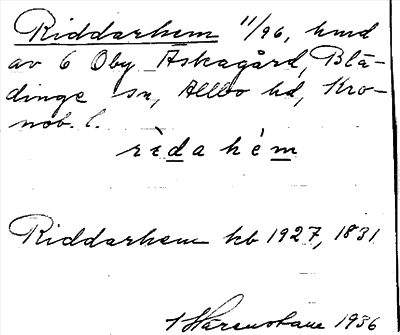 Riddarhem 11/96, hmd
av 6 Oby Askagård, Blä-
dinge sn, Allbo hd, Kro-
nob. l.
rèdahèm
Riddarhem kb 1927, 1831
1936